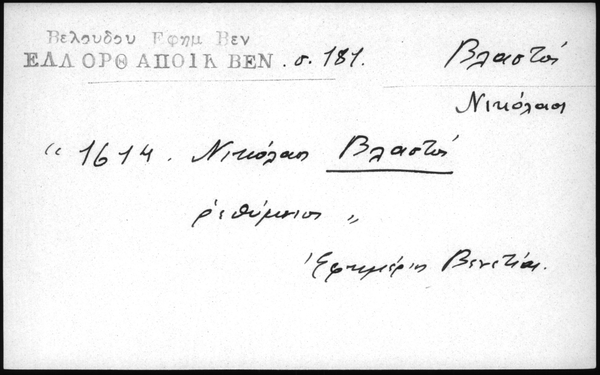 Βελουδου Εφημ Βεν
ΕΛΛ ΟΡΘ ΑΠΟΙΚ ΒΕΝ . σ. 181.
Βλαστός
Νικόλαος
“ 1614. Νικόλαος Βλαστός
ρεθύμνιος „
Ἐφημέριος Βενετίας.